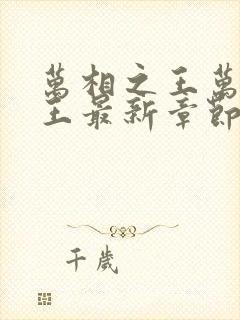 萬相之王萬
王最新章節
千歲